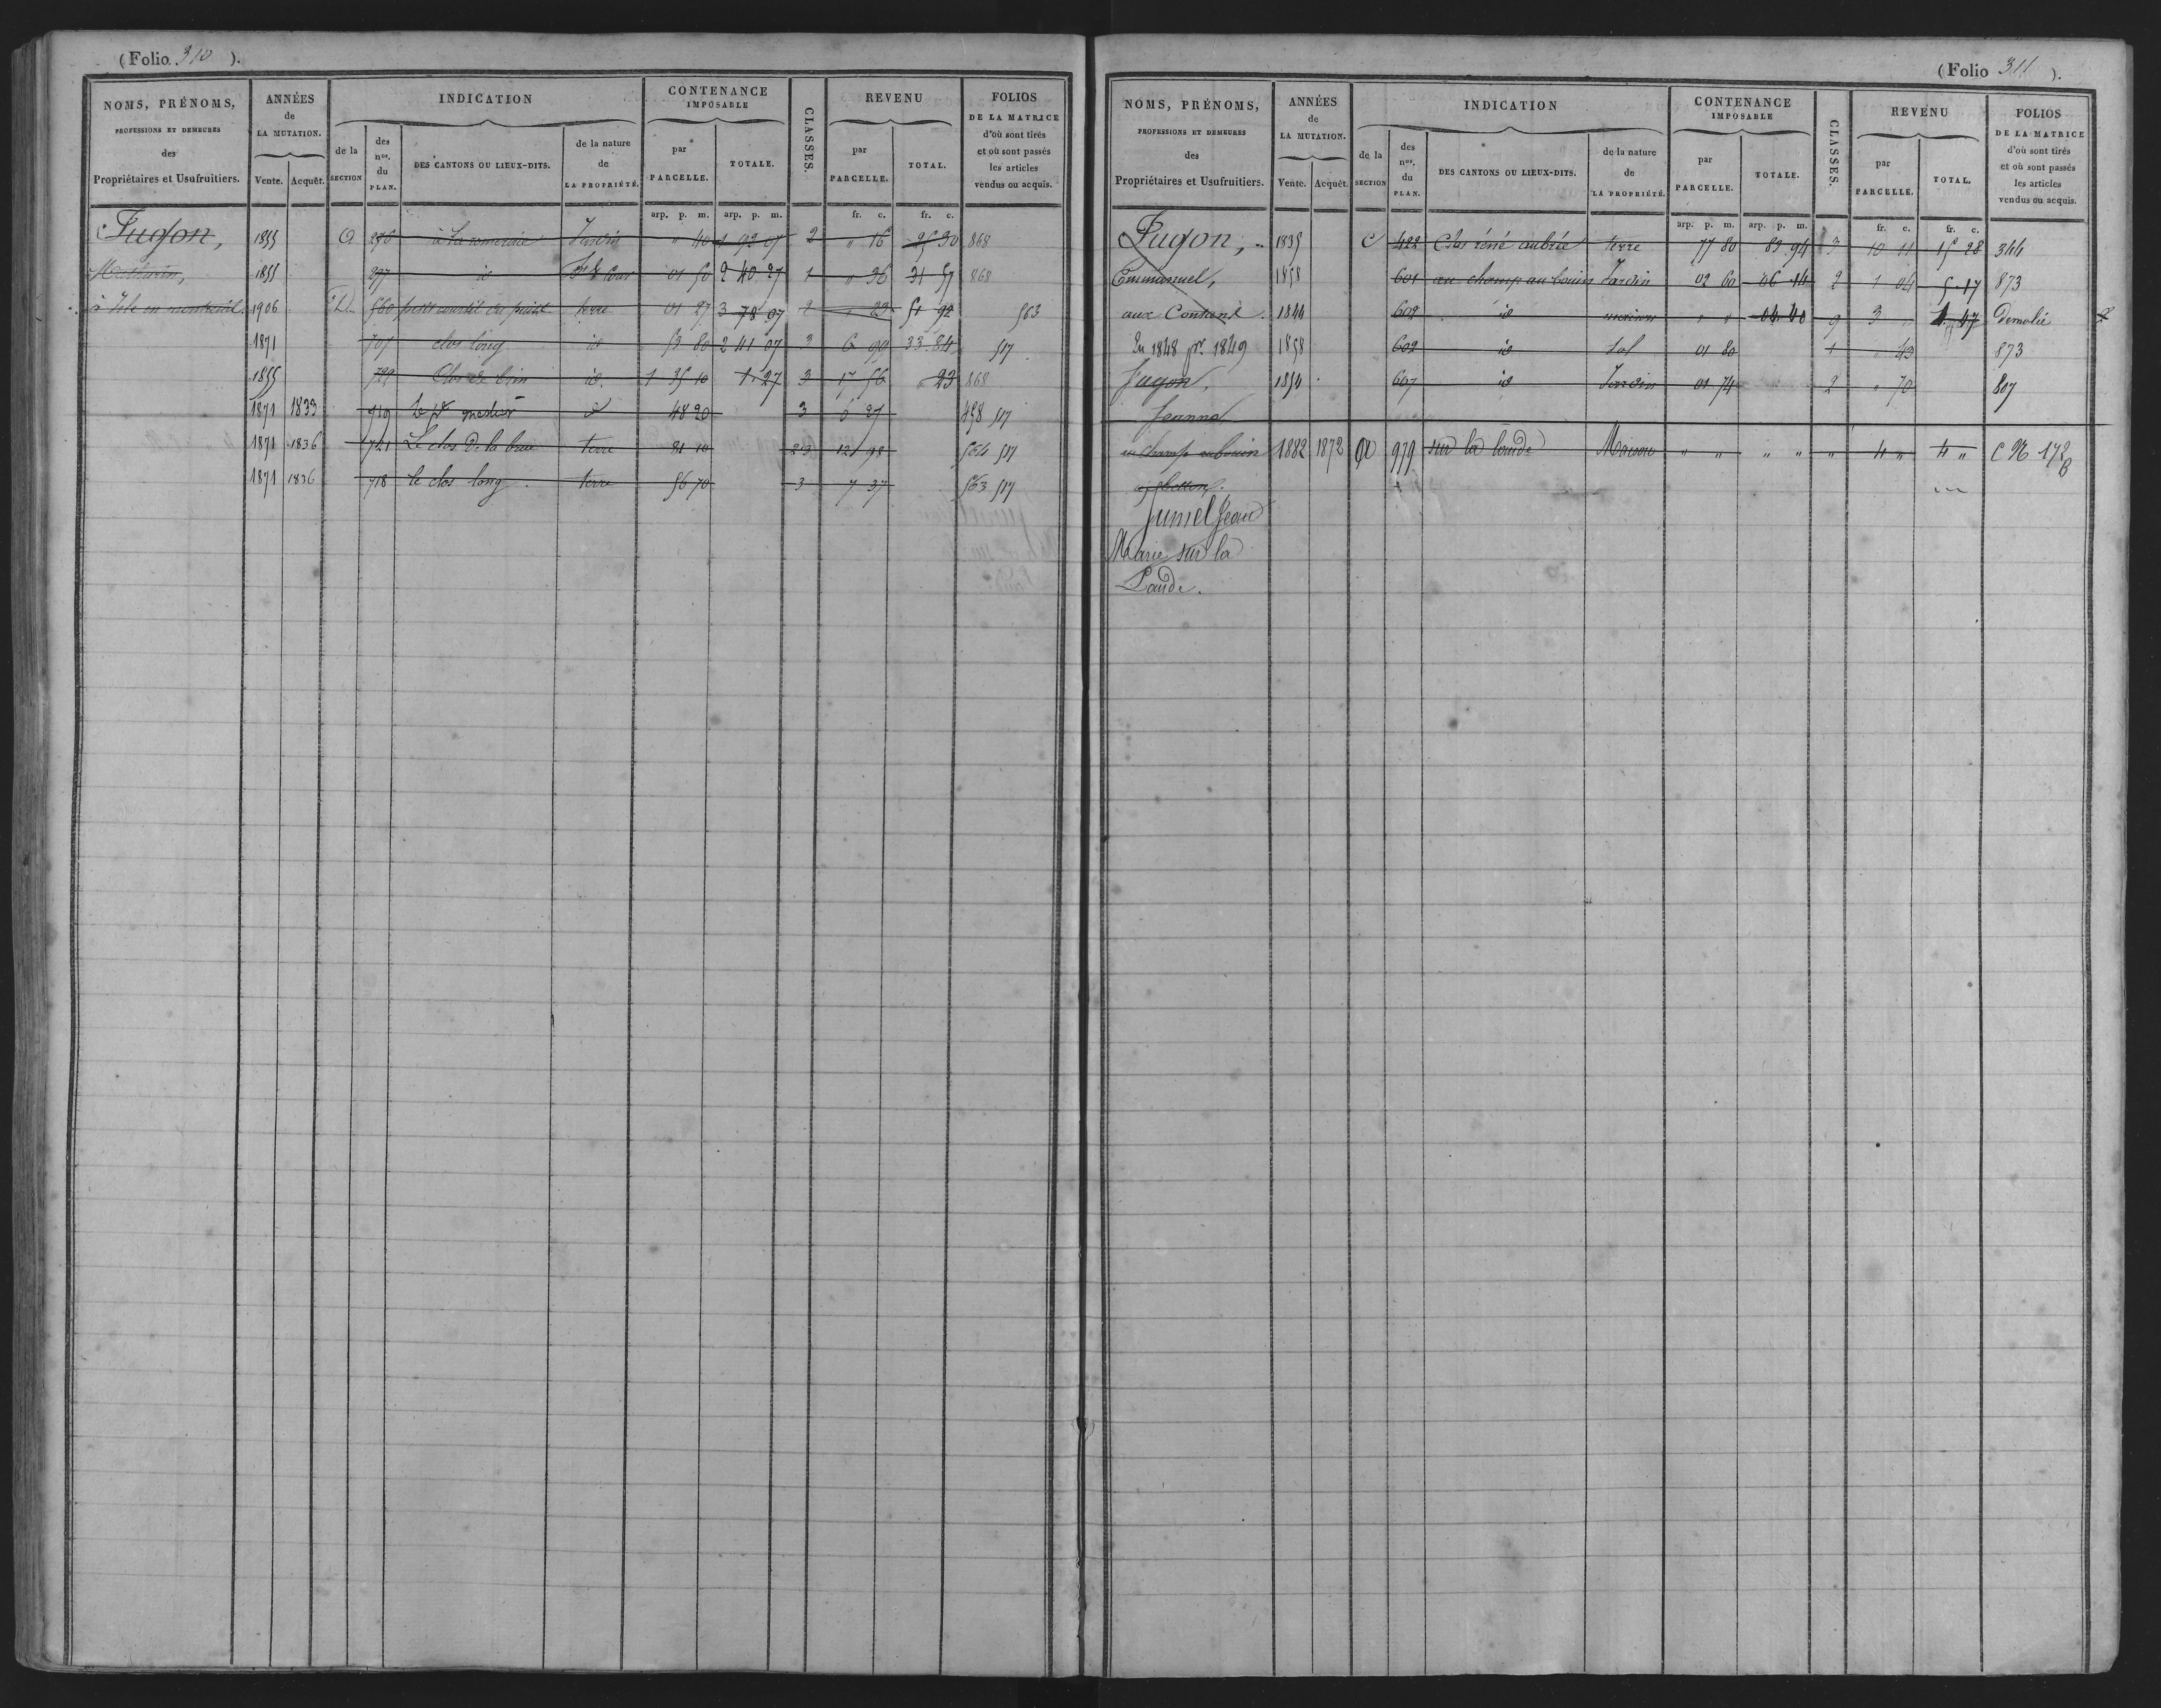 (Folio. 310 ).
NOMS, PRÉNOMS, PROFESSIONS ET DEMEURES des Propriétaires et Usufruitiers. ANNÉES de LA MUTATION. Vente. Acquêt. INDICATION de la SECTION des nos. du PLAN. DES CANTONS OU LIEUX-DITS. de la nature de LA PROPRIÉTÉ. CONTENANCE IMPOSABLE par PARCELLE. TOTALE. CLASSES. REVENU par PARCELLE. TOTAL. FOLIOS DE LA MATRICE d'où sont tirés et où sont passés les articles vendus ou acquis.
arp. p. m. arp. p. m. fr. c. fr. c.
Jugon, 1855 276 Jardin " 40 1 92 07 2 " 16 25 30 868
1855 297 id 01 50 2 40 27 1 " 36 31 57 868
1906 560 petit courtil du puits terre 01 27 3 78 07 2 " 23 51 92 563
1871 707 clos long id 53 80 2 41 07 3 6 99 33 84 517
1855 729 id. 1 35 10 1 27 3 17 56 " 23 868
1871 1833 919 48 20 3 6 27 458 517
1871 1836 721 Le clos de la terre 81 10 23 12 98 564 517
1871 1836 718 le clos long terre 56 70 3 7 37 563 517
(Folio 311 ).
NOMS, PRÉNOMS, PROFESSIONS ET DEMEURES des Propriétaires et Usufruitiers. ANNÉES de LA MUTATION. Vente. Acquêt. INDICATION de la SECTION des nos. du PLAN. DES CANTONS OU LIEUX-DITS. de la nature de LA PROPRIÉTÉ. CONTENANCE IMPOSABLE par PARCELLE. TOTALE. CLASSES. REVENU par PARCELLE. TOTAL. FOLIOS DE LA MATRICE d'où sont tirés et où sont passés les articles vendus ou acquis.
arp. p. m. arp. p. m. fr. c. fr. c.
Jugon, 1835 C 422 Clos réné aubrée terre 77 80 83 94 3 10 11 15 28 344
Emmanuel, 1858 601 au champ aubouin Jardin 02 60 06 14 2 1 04 5 17 873
aux Contant. 1844 602 id maison " " 04 40 9 3 " 1 47 Démolie
En 1848 pr. 1849 1858 602 id Sol 01 80 1 " 43 873
Jugon, 1854 607 id Jardin 01 74 2 " 70 807
Jeanne,
au champ aubouin 1882 1872 979 sur la lande Maison " " " " " 4 " 4 " C 96 172
Jumel Jean
Marie sur la
Lande.